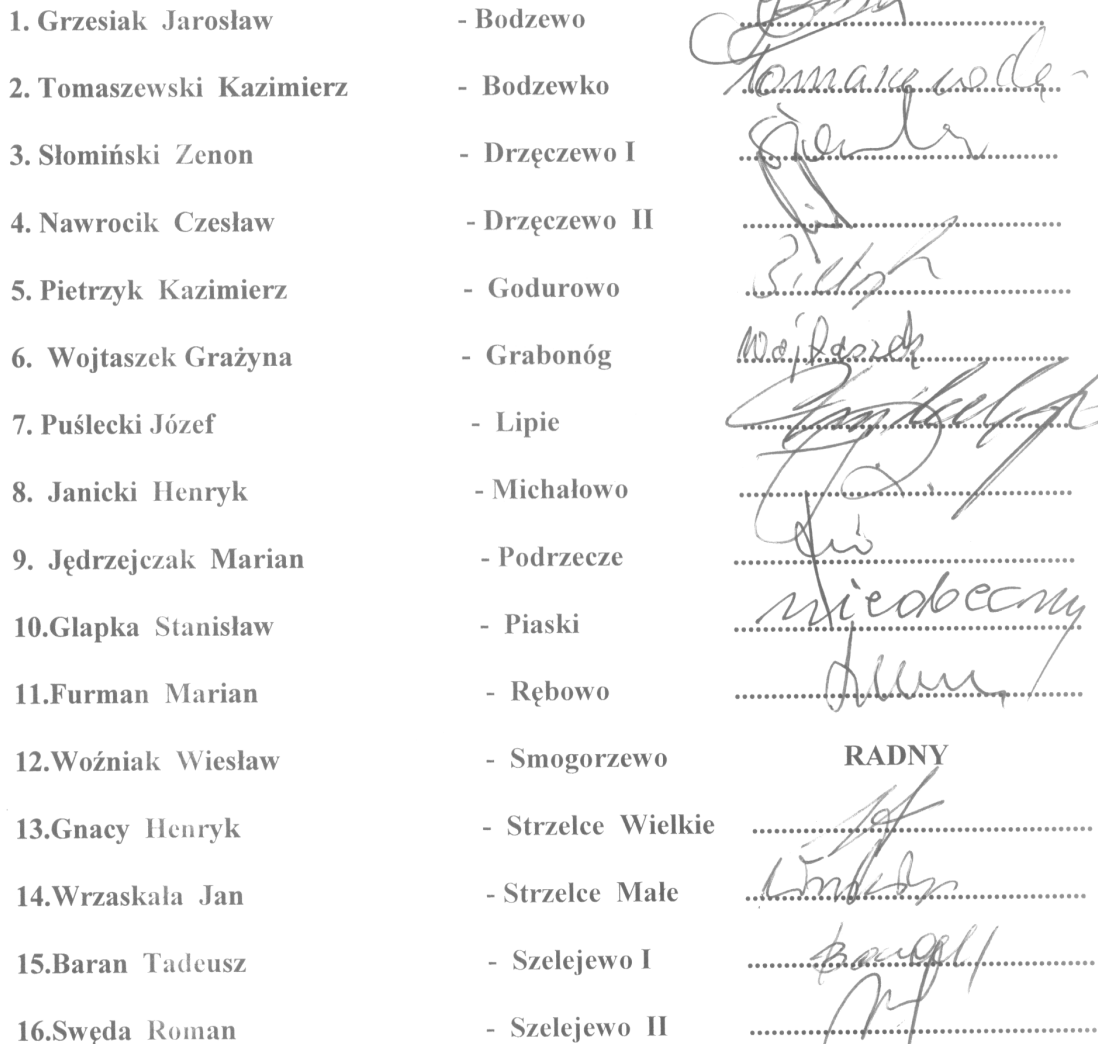 1. Grzesiak Jarosław - Bodzewo ........
2. Tomaszewski Kazimierz - Bodzewko ........
3. Słomiński Zenon - Drzęczewo I ........
4. Nawrocik Czesław - Drzęczewo II ........
5. Pietrzyk Kazimierz - Godurowo ........
6. Wojtaszek Grażyna - Grabonóg Wojtaszek
7. Puślecki Józef - Lipie ........
8. Janicki Henryk - Michałowo ........
9. Jędrzejczak Marian - Podrzecze ........
10.Glapka Stanisław - Piaski nieobecny
11.Furman Marian - Rębowo ........
12.Woźniak Wiesław - Smogorzewo RADNY
13.Gnacy Henryk - Strzelce Wielkie ........
14.Wrzaskała Jan - Strzelce Małe ........
15.Baran Tadeusz - Szelejewo I ........
16.Swęda Roman - Szelejewo II ........